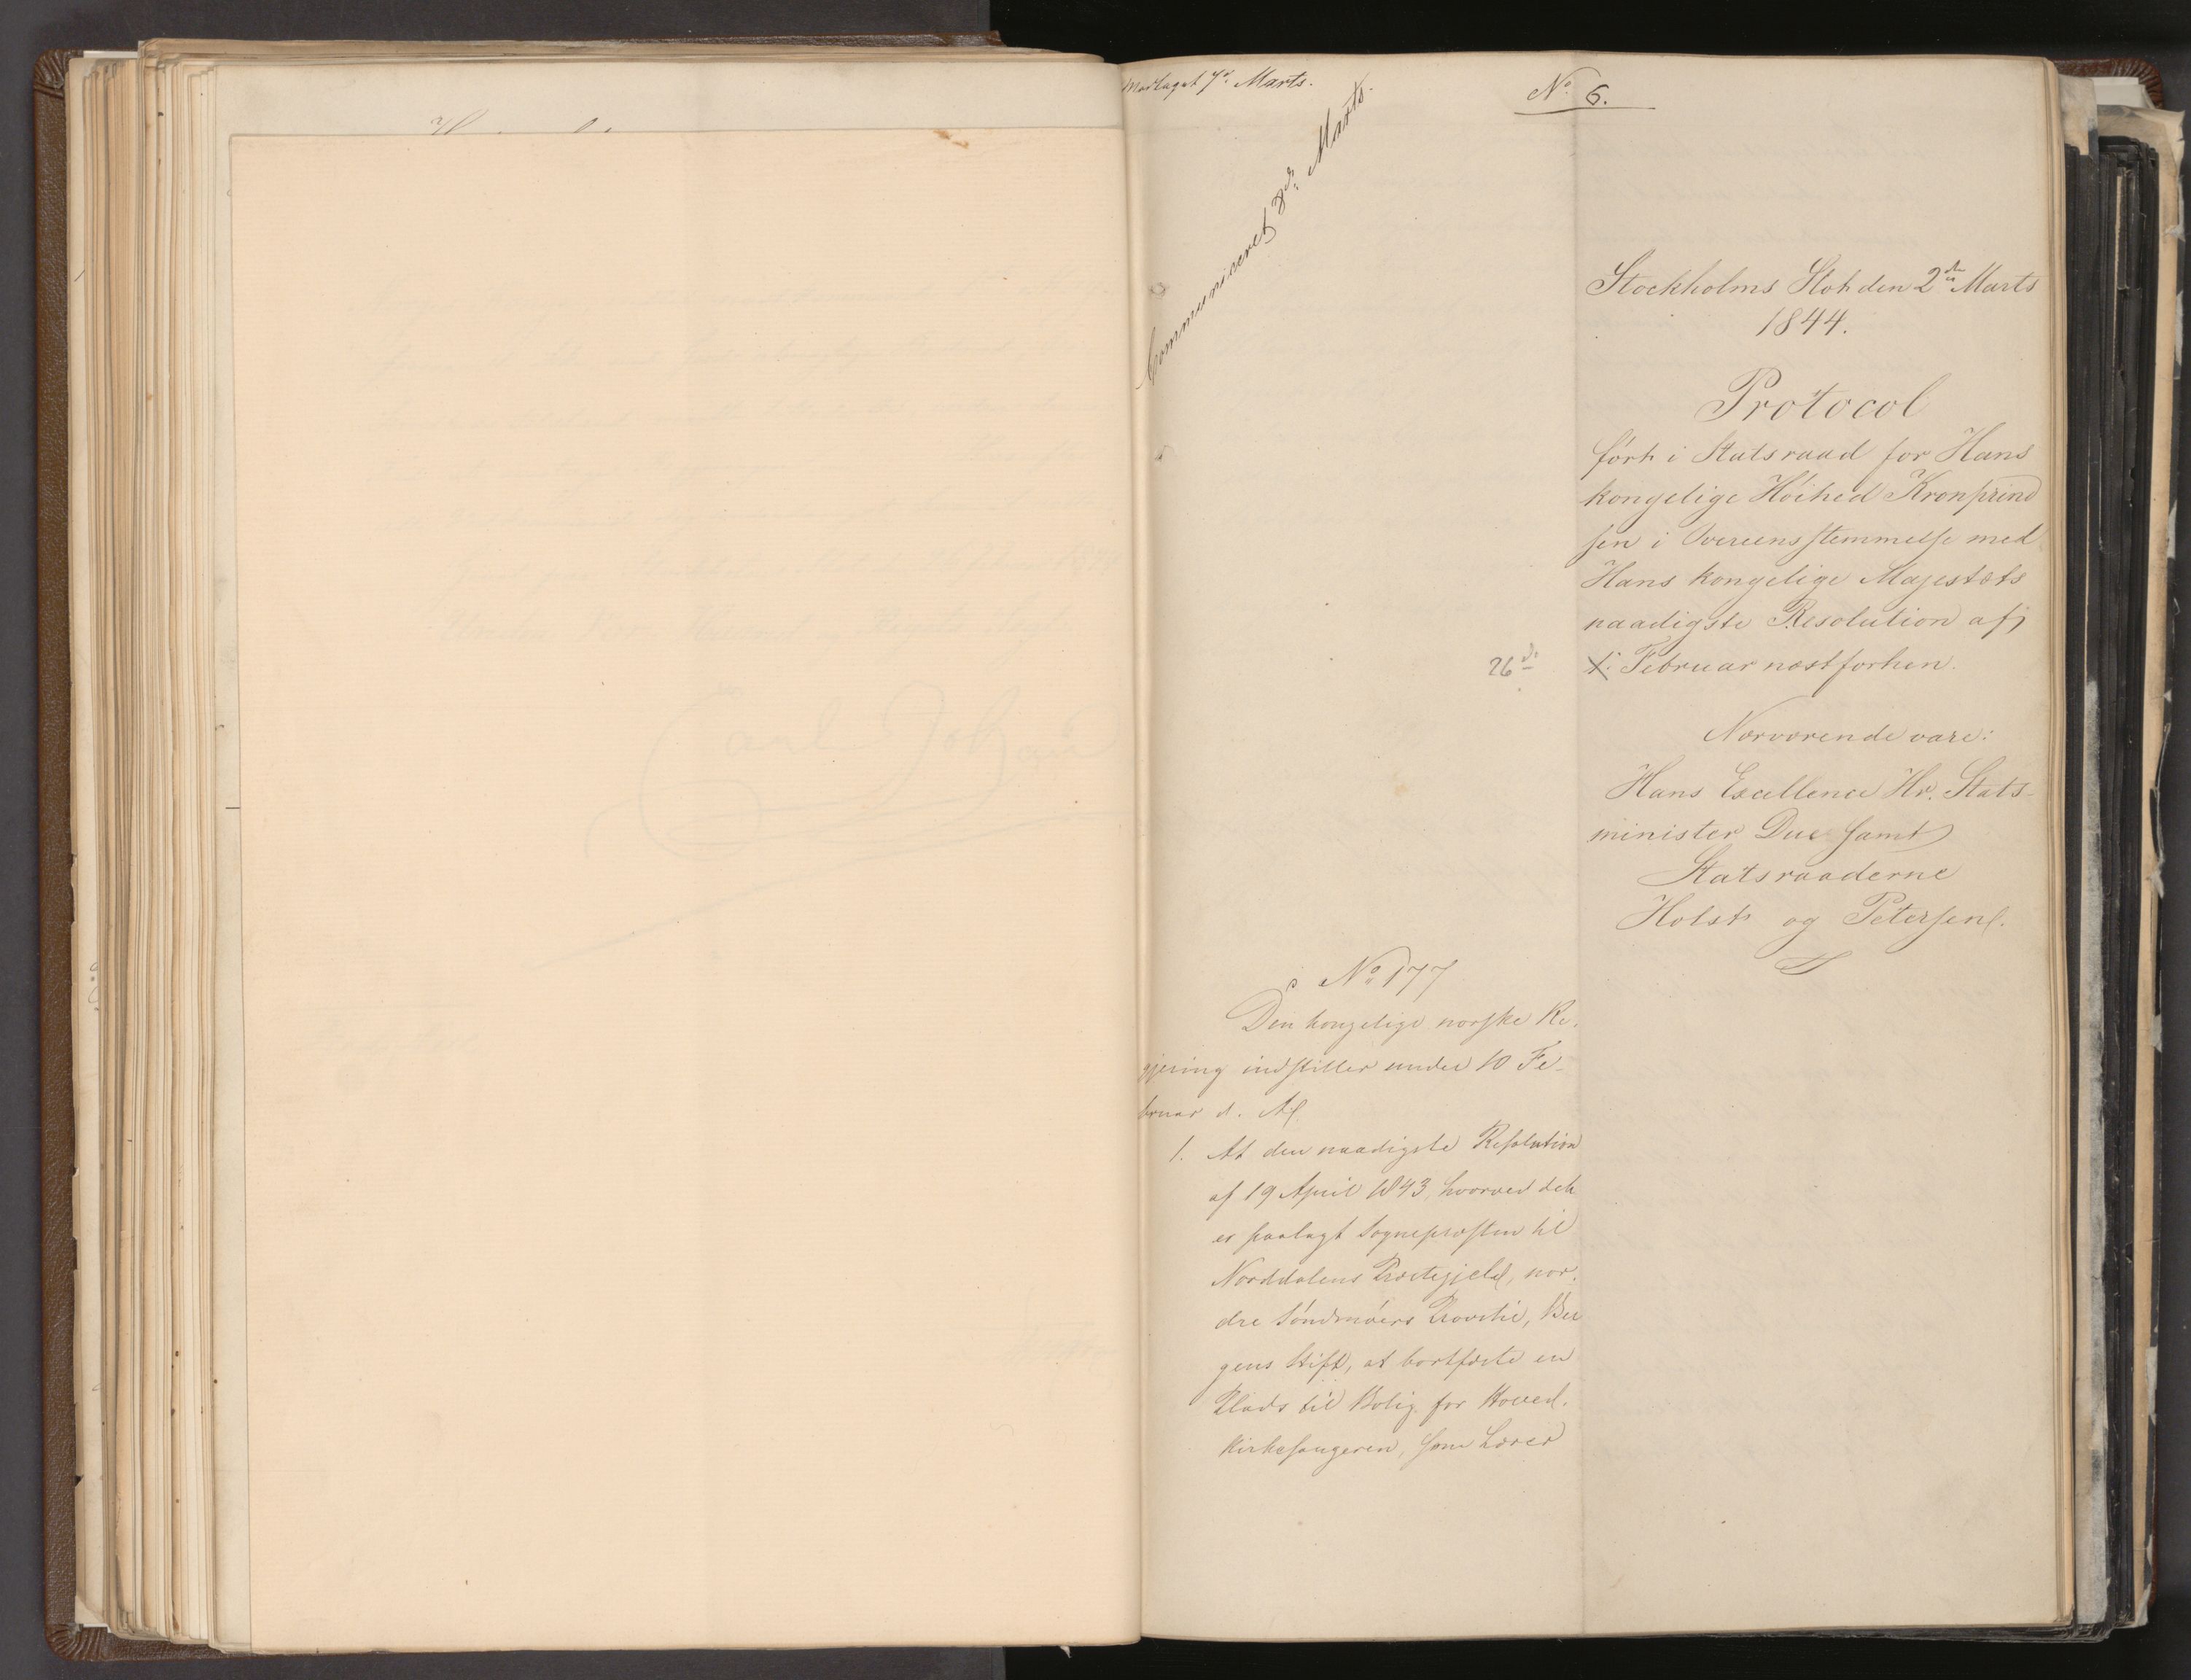 Modtaget 7d. Marts.
Communiceret 8d. Marts.
No 6.
Stockholms Slot den 2den Marts
1844.
Protocol
ført i Statsraad for Hans
kongelige Høihed Kronprind
sen i Overeensstemmelse med
Hans kongelige Majestæts
naadigste Resolution af
26d. Februar næstforhen.
Nærværende vare:
Hans Excellence Hr. Stats-
minister Due samt
Statsraaderne
Holst og Petersen.
No 177
Den kongelige norske Re-
gjering indstiller under 10 Fe-
bruar d. A.
1. At den naadigste Resolution
af 19 April 1843, hvorved det
er paalagt Sognepræsten til
Norddalens Præstegjeld, nor-
dre Søndmøers Provstie, Ber
gens Stift, at bortfæste en
Plads til Bolig for Hoved-
kirkesangeren, som Lærer
Carl Johan